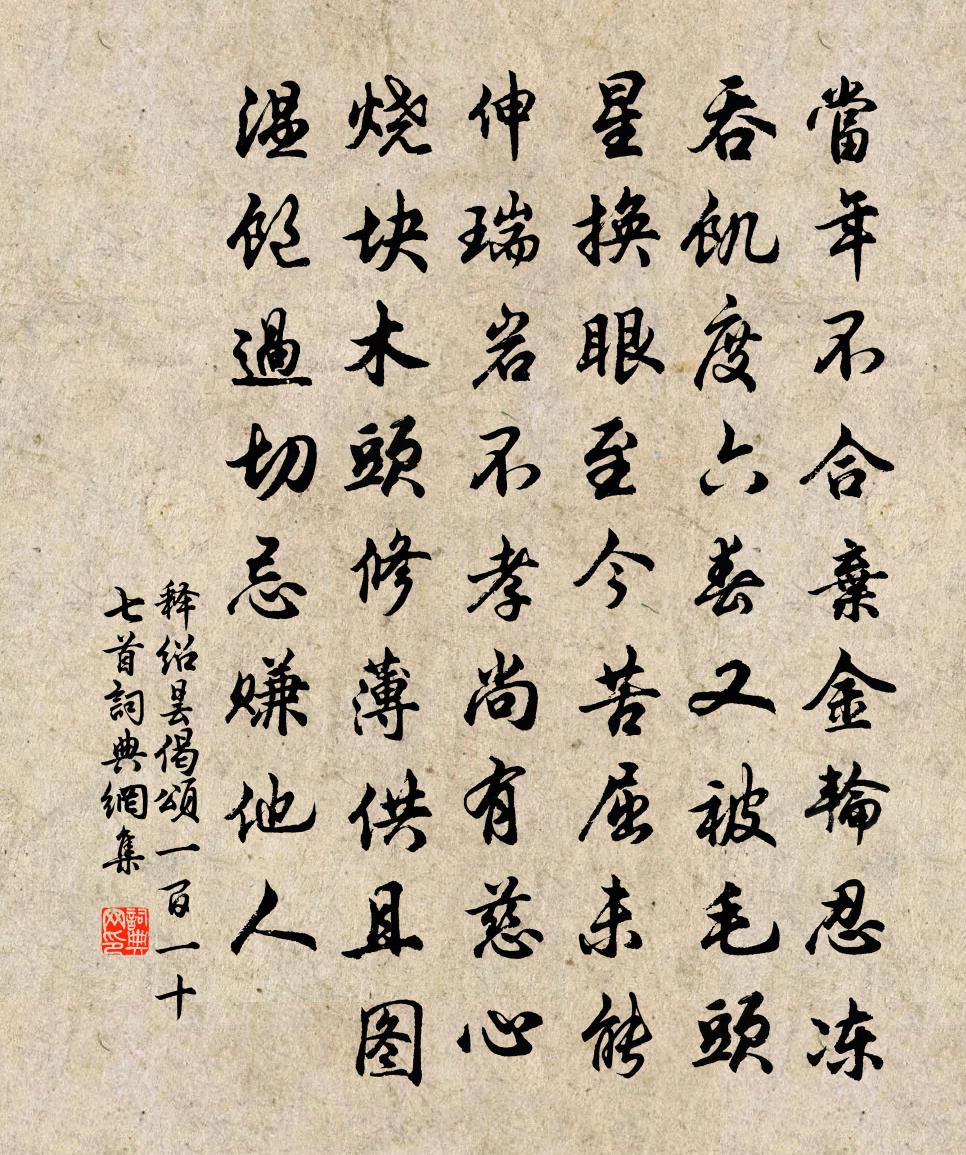 當年不合棄金輪忍冻
吞飢度六春又被毛頭
星换眼至今苦屈未能
伸瑞岩不孝尚有慈心
烧块木頭修薄供且图
温飽過切忌赚他人
释绍昙偈頌一百一十
七首詞典網集
詞典网印